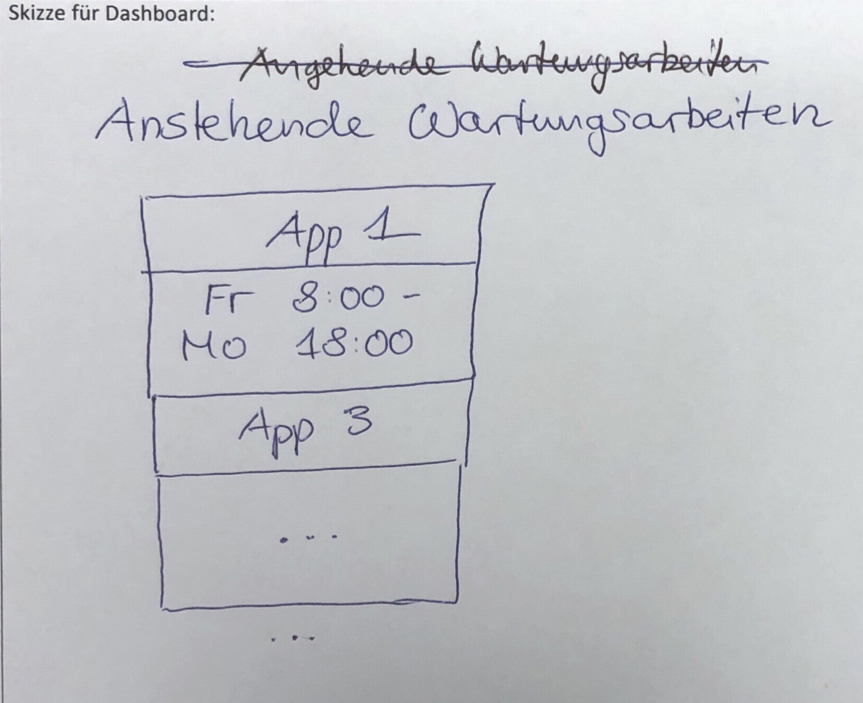 Skizze für Dashboard:
Angehende Wartungsarbeiten
Anstehende Wartungsarbeiten
App 1
Fr 8:00 -
Mo 18:00
App 3
...
...